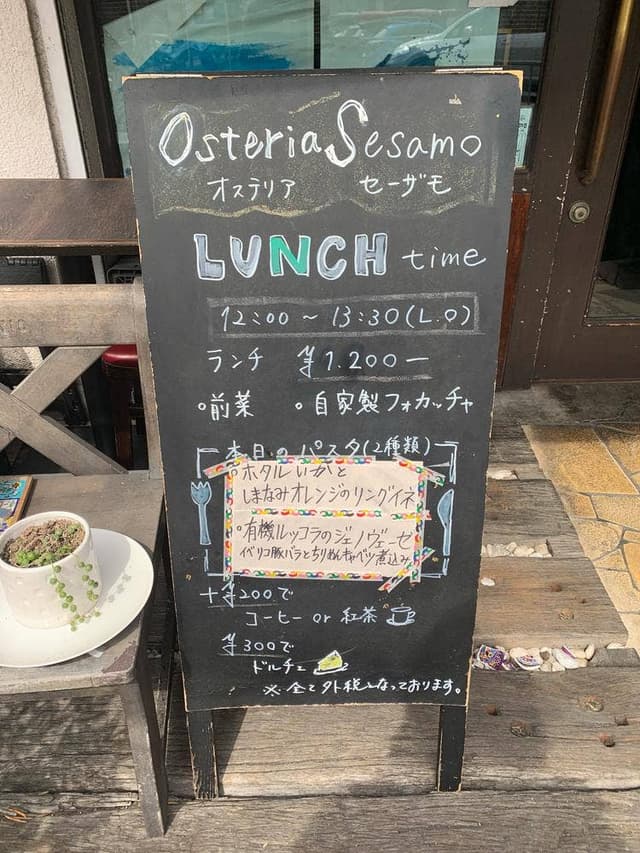 Osteria Sesamo
オステリア セーザモ
LUNCH time
12:00 ~ 13:30(L.O)
ランチ ¥1.200-
・前菜 ・自家製フォカッチャ
本日のパスタ(2種類)
・ホタルいかと
しまなみオレンジのリングイネ
・有機ルッコラのジェノヴェーゼ
イベリコ豚バラとちりめんキャベツ煮込み
+¥200で
コーヒー or 紅茶
¥300で
ドルチェ
※全て外税となっております。